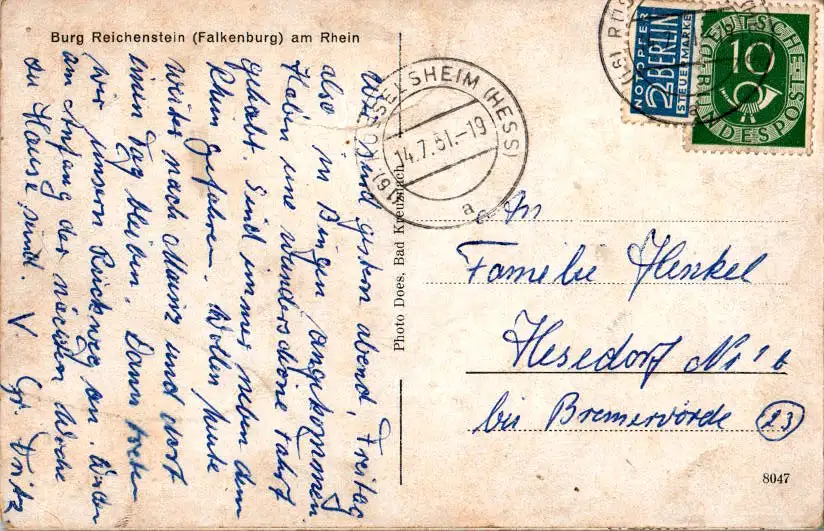 Burg Reichenstein (Falkenburg) am Rhein
Wir sind gestern abend, Freitag
also in Bingen angekommen
Haben eine wunderschöne Fahrt
gehabt. Sind immer neben dem
Rhein gefahren. Wollen heute
weiter nach Mainz und dort
einen Tag bleiben. Dann treten
wir unsern Rückweg an.
am Anfang der nächsten Woche
zu Hause sind. V
Gr. Fritz
Photo Does, Bad Kreuznach
(16) RÜSSELSHEIM (HESS)
14.7.51.-19
a
NOTOPFER
2 BERLIN
STEUERMARKE
DEUTSCHE
10
BUNDESPOST
(16) RÜS
An
Familie Henkel
Hesedorf No 16
bei Bremervörde (23)
8047